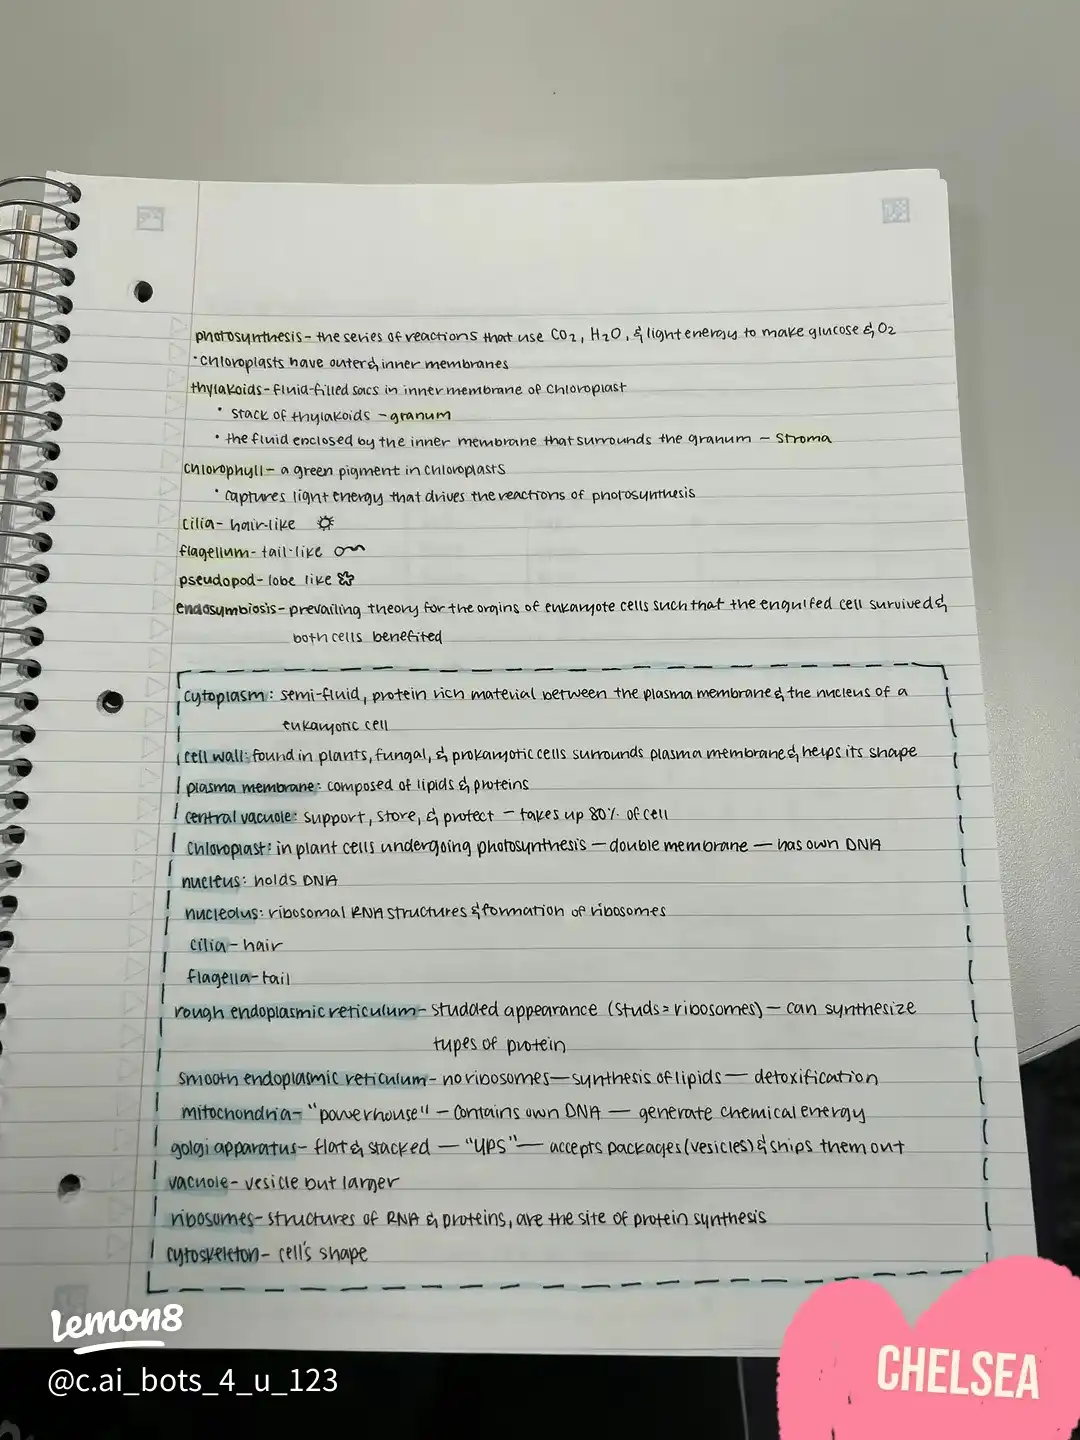 photosynthesis - the series of reactions that use CO2, H2O, & light energy to make glucose & O2
• Chloroplasts have outer & inner membranes
thylakoids - fluid-filled sacs in inner membrane of chloroplast
• stack of thylakoids - granum
• the fluid enclosed by the inner membrane that surrounds the granum - stroma
chlorophyll - a green pigment in chloroplasts
• captures light energy that drives the reactions of photosynthesis
cilia - hair-like
flagellum - tail-like
pseudopod - lobe like
endosymbiosis - prevailing theory for the orgins of eukaryote cells such that the engulfed cell survived &
both cells benefited
cytoplasm: semi-fluid, protein rich material between the plasma membrane & the nucleus of a
eukaryotic cell
cell wall: found in plants, fungal, & prokaryotic cells surrounds plasma membrane & helps its shape
plasma membrane: composed of lipids & proteins
central vacuole: support, store, & protect - takes up 80% of cell
Chloroplast: in plant cells undergoing photosynthesis - double membrane - has own DNA
nucleus: holds DNA
nucleolus: ribosomal RNA structures & formation of ribosomes
cilia - hair
flagella - tail
rough endoplasmic reticulum - studded appearance (studs = ribosomes) - can synthesize
types of protein
smooth endoplasmic reticulum - no ribosomes - synthesis of lipids - detoxification
mitochondria - "powerhouse" - contains own DNA - generate chemical energy
golgi apparatus - flat & stacked - "UPS" - accepts packages (vesicles) & ships them out
vacuole - vesicle but larger
ribosomes - structures of RNA & proteins, are the site of protein synthesis
cytoskeleton - cell's shape
Lemon8
@c.ai_bots_4_u_123
CHELSEA